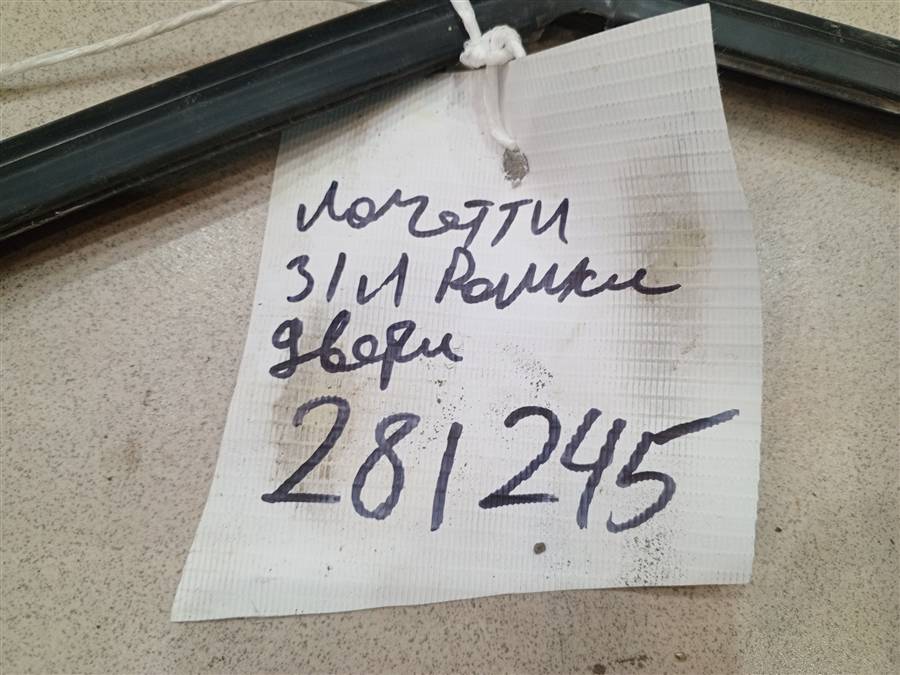 Лачетти
З/Л Рамки
двери
281245